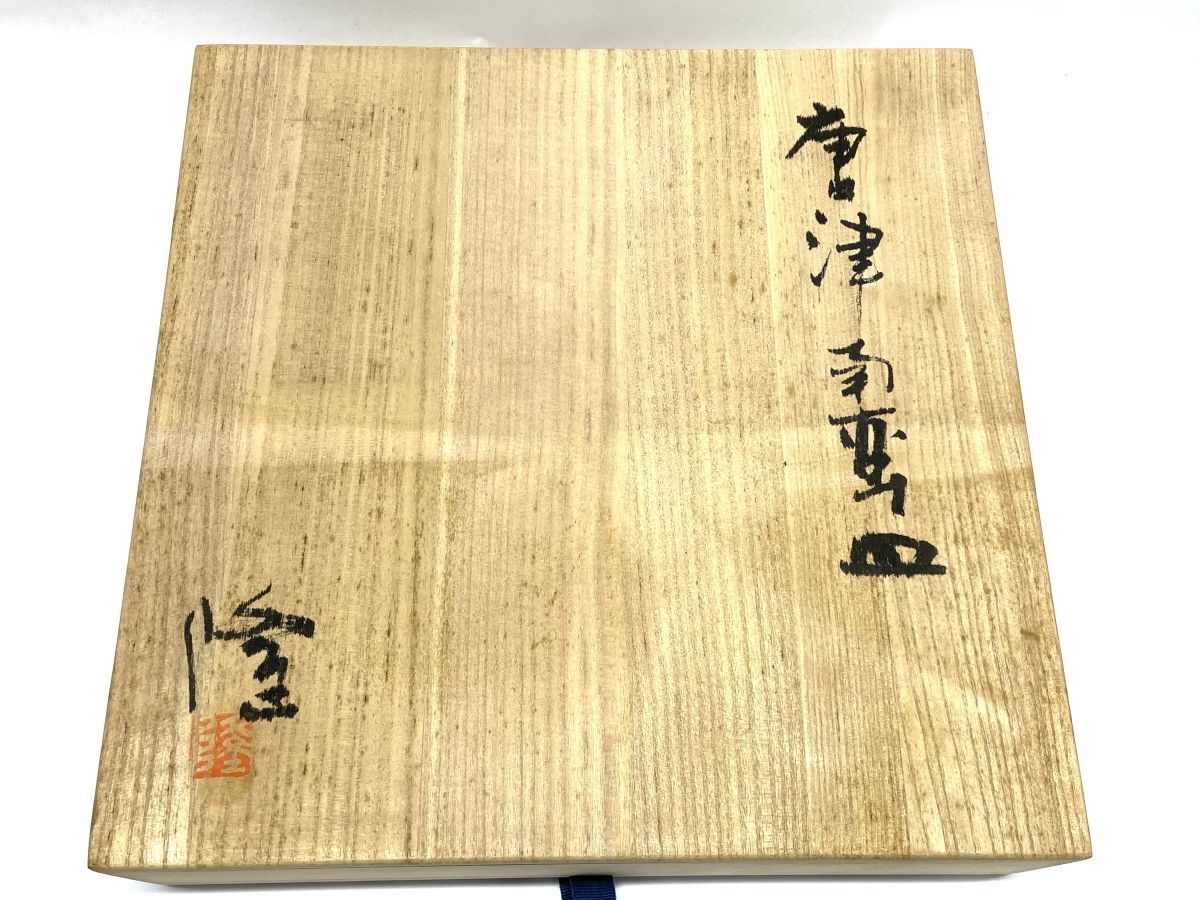 唐津南蛮皿
隆